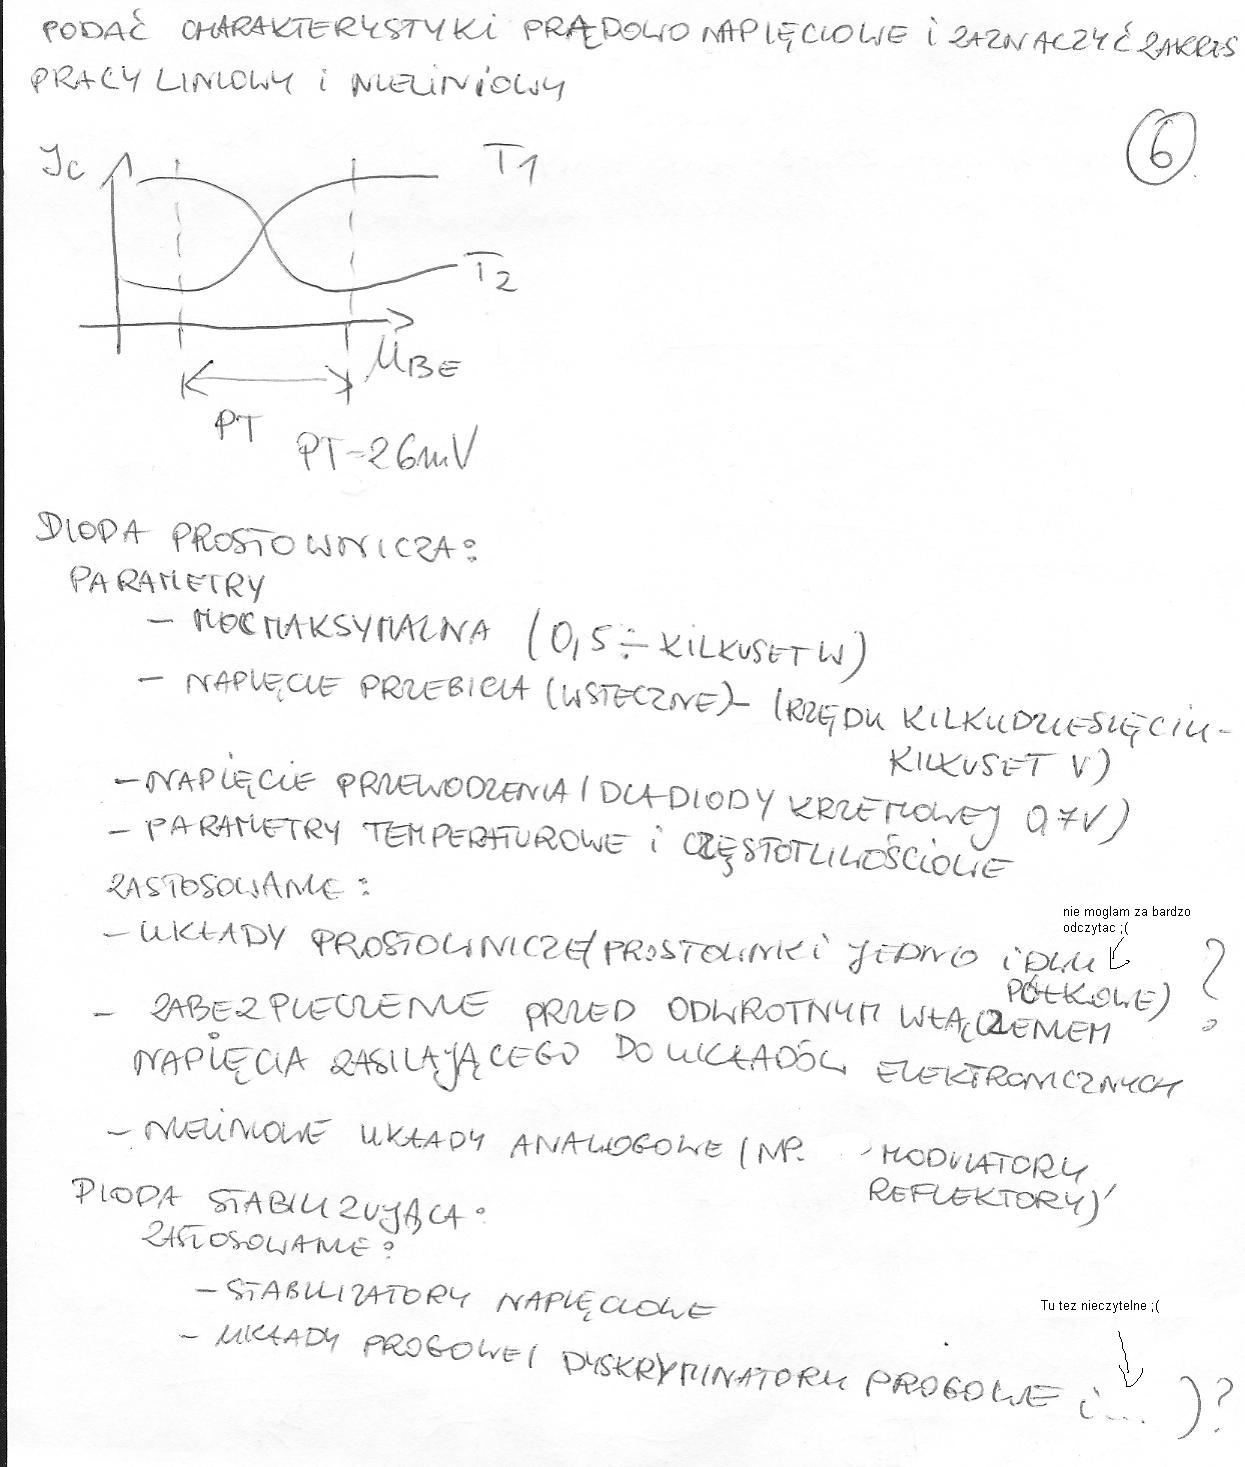 PODAĆ CHARAKTERYSTYKI PRĄDOWO NAPIĘCIOWE i ZAZNACZYĆ ZAKRES
PRACY LINIOWY i NIELINIOWY
6
IC
T1
T2
UBE
PT
PT-26mV
DIODA PROSTOWNICZA:
PARAMETRY
- MOC MAKSYMALNA (0,5 ÷ KILKUSET W)
- NAPIĘCIE PRZEBICIA (WSTECZNE)- (RZĘDU KILKUDZIESIĘCIU-
KILKUSET V)
- NAPIĘCIE PRZEWODZENIA (DLA DIODY KRZEMOWEJ 0,7V)
- PARAMETRY TEMPERATUROWE i CZĘSTOTLIWOŚCIOWE
ZASTOSOWANIE:
nie moglam za bardzo
odczytac ;(
- UKŁADY PROSTOWNICZE (PROSTOWNIKI JEDNO i DWU
PÓŁKOWE) ?
- ZABEZPIECZENIE PRZED ODWROTNYM WŁĄCZENIEM
NAPIĘCIA ZASILAJĄCEGO DO UKŁADÓW ELEKTRONICZNYCH
- NIELINIOWE UKŁADY ANALOGOWE (NP. MODULATORY
REFLEKTORY)
DIODA STABILIZUJĄCA:
ZASTOSOWANIE:
- STABILIZATORY NAPIĘCIOWE
Tu tez nieczytelne ;(
- UKŁADY PROGOWE( DYSKRYMINATORY PROGOWE i... )?